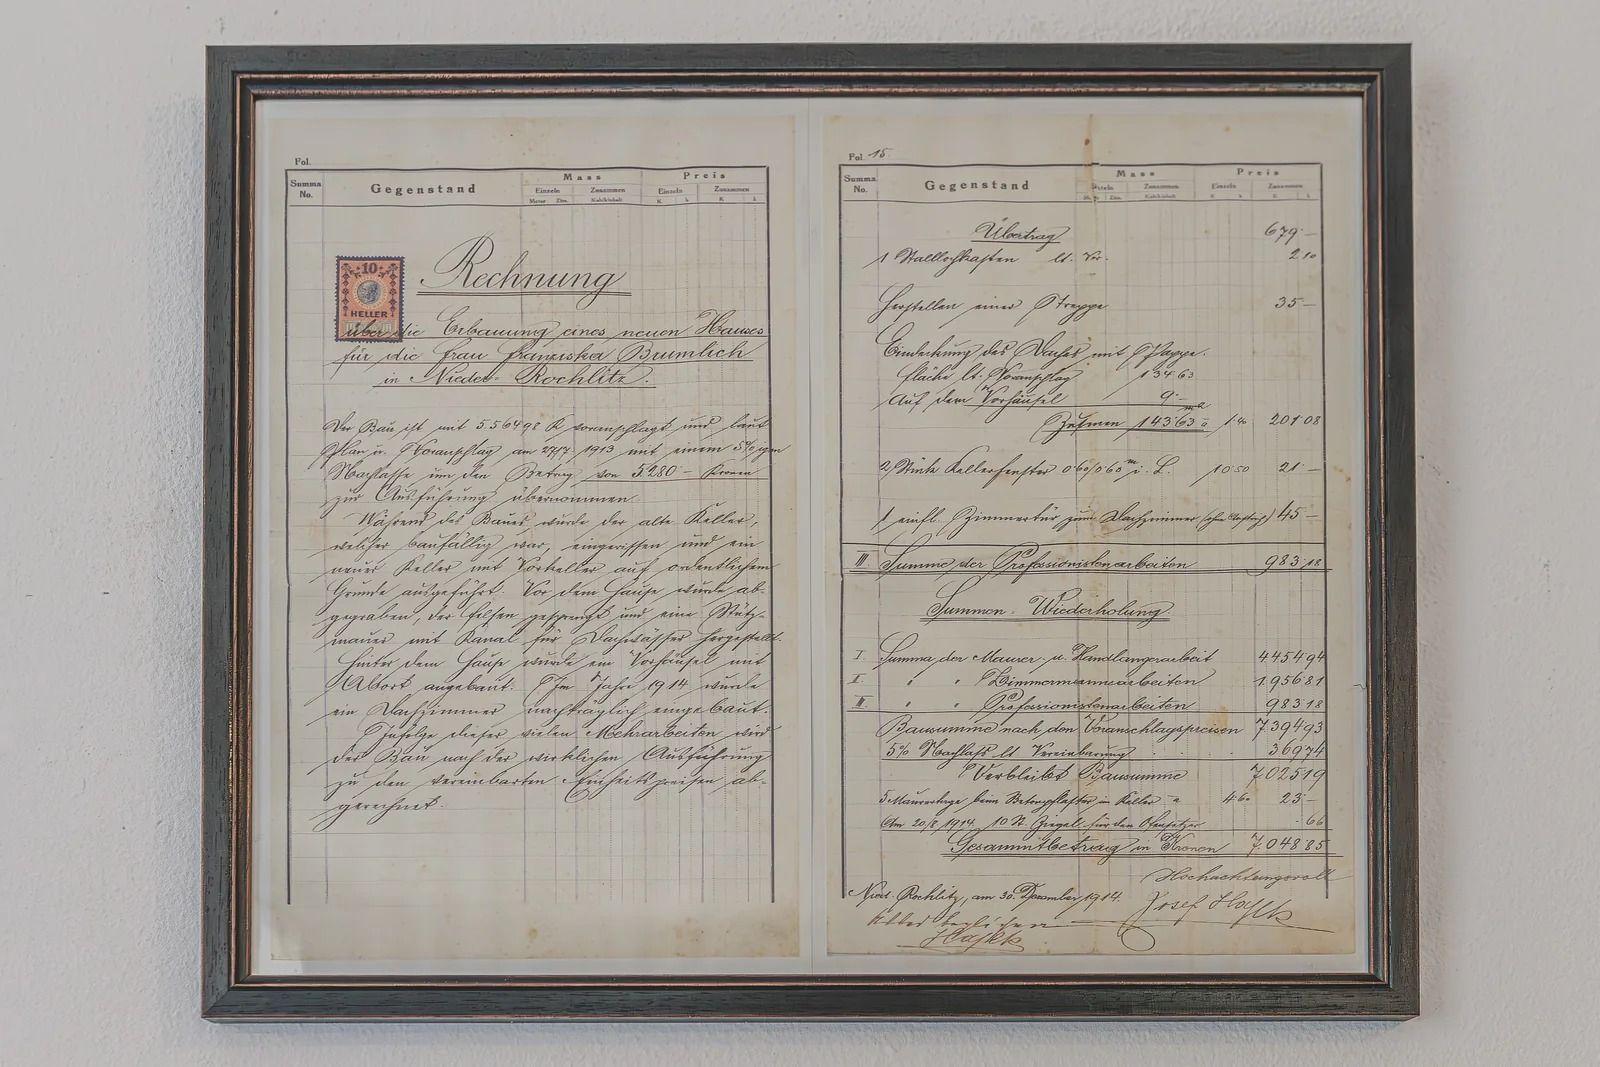 Fol.
Summa No. Gegenstand Mass Preis
Einzeln Zusammen Einzeln Zusammen
Meter Ztm. Kubikinhalt K h K h
10
HELLER
Rechnung
über die Erbauung eines neuen Hauses
für die Frau Franziska Brumlich
in Nieder-Rochlitz.
Der Bau ist mit 5.564 98 K voranschlagt und laut
Plan u. Voranschlag am 27/7 1913 mit einem 5% igen
Nachlasse um den Betrag von 5.280 – Kronen
zur Ausführung übernommen.
Während des Baues wurde der alte Keller,
welcher baufällig war, eingerissen und ein
neuer Keller mit Vorkeller auf ordentlichem
Grunde ausgeführt. Vor dem Hause wurde ab-
gegraben, der Felsen gesprengt und eine Stütz-
mauer mit Kanal für Dachwässer hergestellt.
Hinter dem Hause wurde ein Vorhäusel mit
Abort angebaut. Im Jahre 1914 wurde
ein Dachzimmer nachträglich eingebaut.
Zufolge dieser vielen Mehrarbeiten wird
der Bau nach der wirklichen Ausführung
zu den vereinbarten Einheitspreisen ab-
gerechnet.
Fol. 15
Summa No. Gegenstand Mass Preis
Einzeln Zusammen Einzeln Zusammen
Ztm. Kubikinhalt K h K h
Übertrag 679 –
1 lt. 2 10
Herstellen einer Treppe 35 –
Eindeckung des Daches mit Pappe.
Fläche lt. Voranschlag 134 63
Auf dem Vorhäusel 9 –
Zusmen 143 63 m² à 1.40 201 08
2 Stück Kellerfenster 0 60/0 60 m i. L. 10 50 21 –
1 einfl. Zimmertür zum Dachzimmer 45 –
III. Summe der Professionistenarbeiten 983 18
Summen-Wiederholung
I. Summa der Maurer- u. Handlangerarbeit 4454 94
I. " " Zimmermannearbeiten 1956 81
III. " " Professionistenarbeiten 983 18
Bausumme nach den Voranschlagspreisen 7.394 93
5% Nachlass lt Vereinbarung 369 74
Verbleibt Bausumme 7.025 19
5 Maurertage beim Betonpflaster im Keller à 4 60 23 –
Am 20/8 1914 10 St. Ziegel für den Ofensetzer – 66
Gesammtbetrag in Kronen 7.048 85
Hochachtungsvoll
Nied. Rochlitz, am 30. Dezember 1914.
Josef